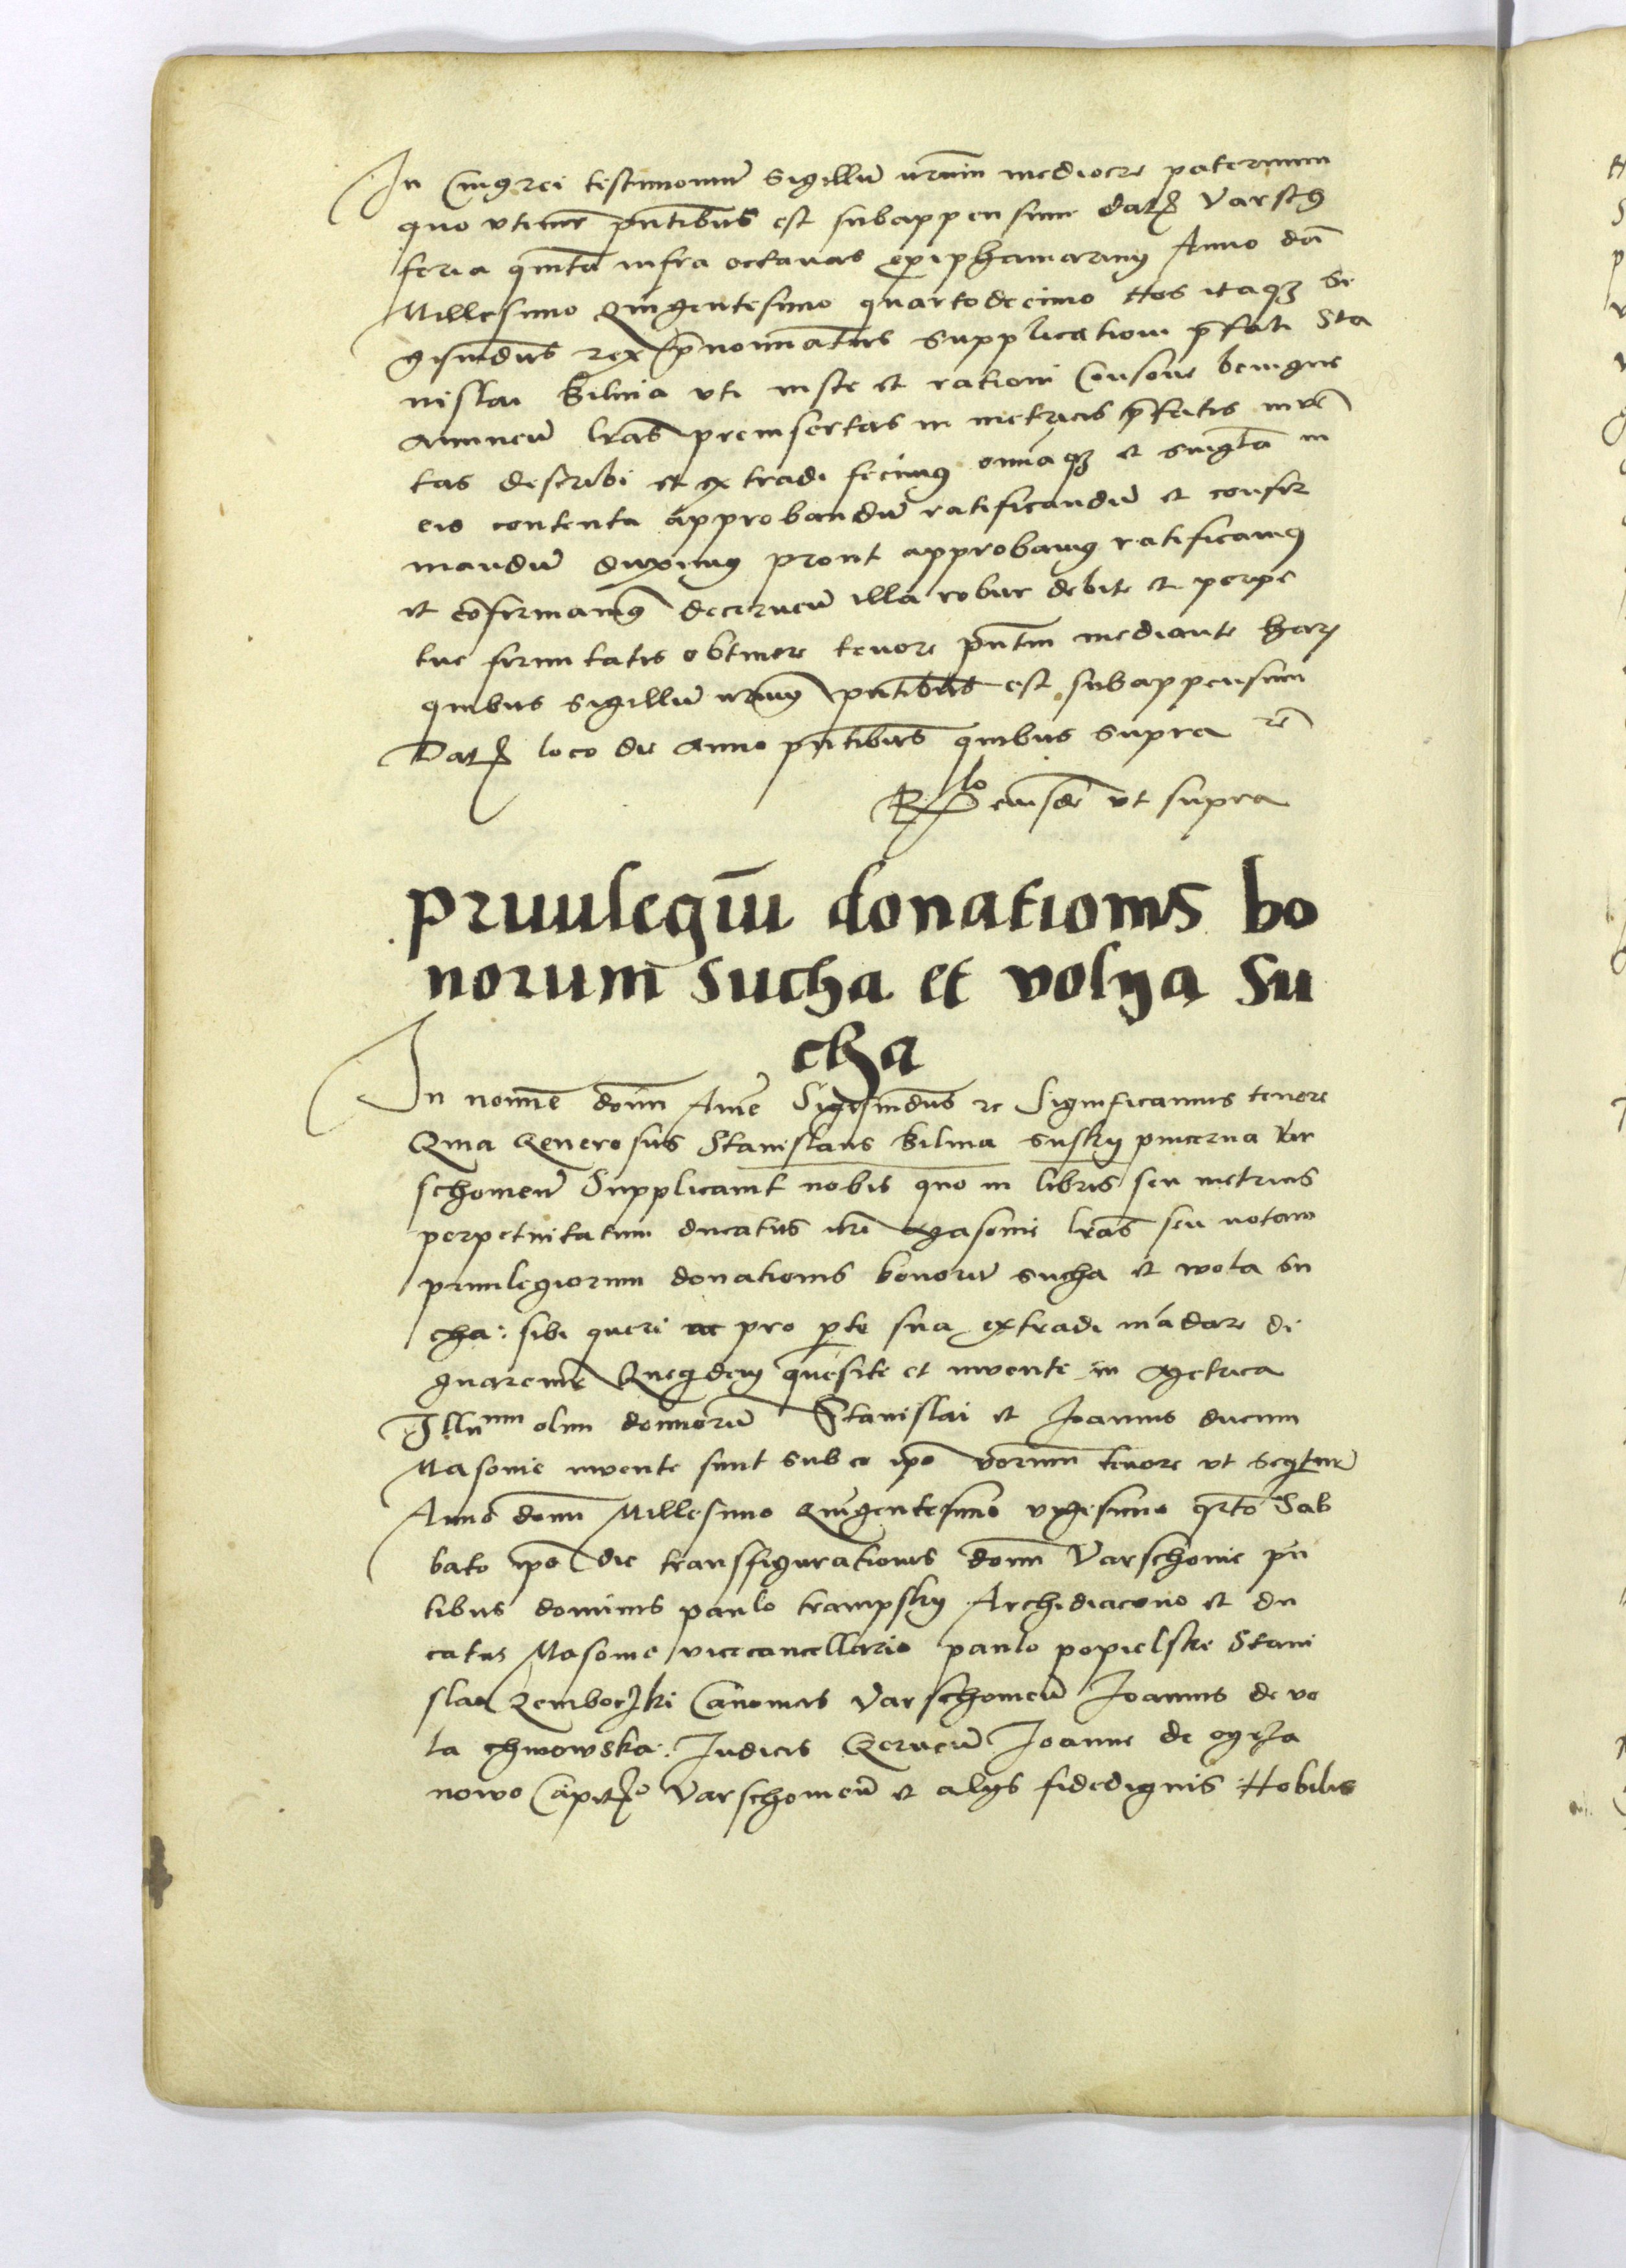 In cuiqrei testimoniu sigillu nrum mediocre paternum
quo vtimr pntibus est subappensum dat Varsch
feria quinta infra octavas epiphaniarum Anno dni
Millesimo Quingentesimo quartodecimo Nos itaqz Si
gismdus rex prenominatus supplicationi prefati Sta
nislai Bilina vti iuste et rationi consone benigne
annuen lras preinsertas in metricis prefatis inven
tas describi et extradi fecimus omniaqz et singla in
eis contenta approbandu ratificandu et confir
mandu duximus prout approbamus ratificamus
et confirmamus decernen illa robur debite et perpe
tue firmitatis obtinere tenore pntm mediante har
quibus sigillu nrum pntibus est subappensum
Dat loco die anno pntibus quibus supra rc
Rlo eiusde vt supra
priuilegiu donationis bo
norum sucha et volya su
cha
In nomie domi Ame Sigismdus rc Significamus tenore
Quia Generosus Stanislaus Bilina susky pincerna Var
schovien Supplicavit nobis quo in libris seu metricis
perpetuitatum ducatus nri Masovie lras seu notam
priuilegiorum donationis bonoru sucha et wola su
cha: sibi queri ac pro pte sua extradi madare di
gnaremr Quequidem quesite et invente in Metrica
Illumm olim dominoru Stanislai et Joannis ducum
Masovie invente sunt sub eo ipo verorum tenore vt sequitur
Anno domi Millesimo Quingentesimo vigesimo qrto Sab
bato ipo die transfigurationis domi Varschovie pn
tibus dominis paulo trampsky Archidiacono et du
catus Masovie vicecancellario paulo popielski Stani
slao Zemboczki Canonicis Varschovien Joannis de vo
la chinowska: Judicis Cernen Joanne de
nowo Capit Varschovien et alys fidedignis Nobilis